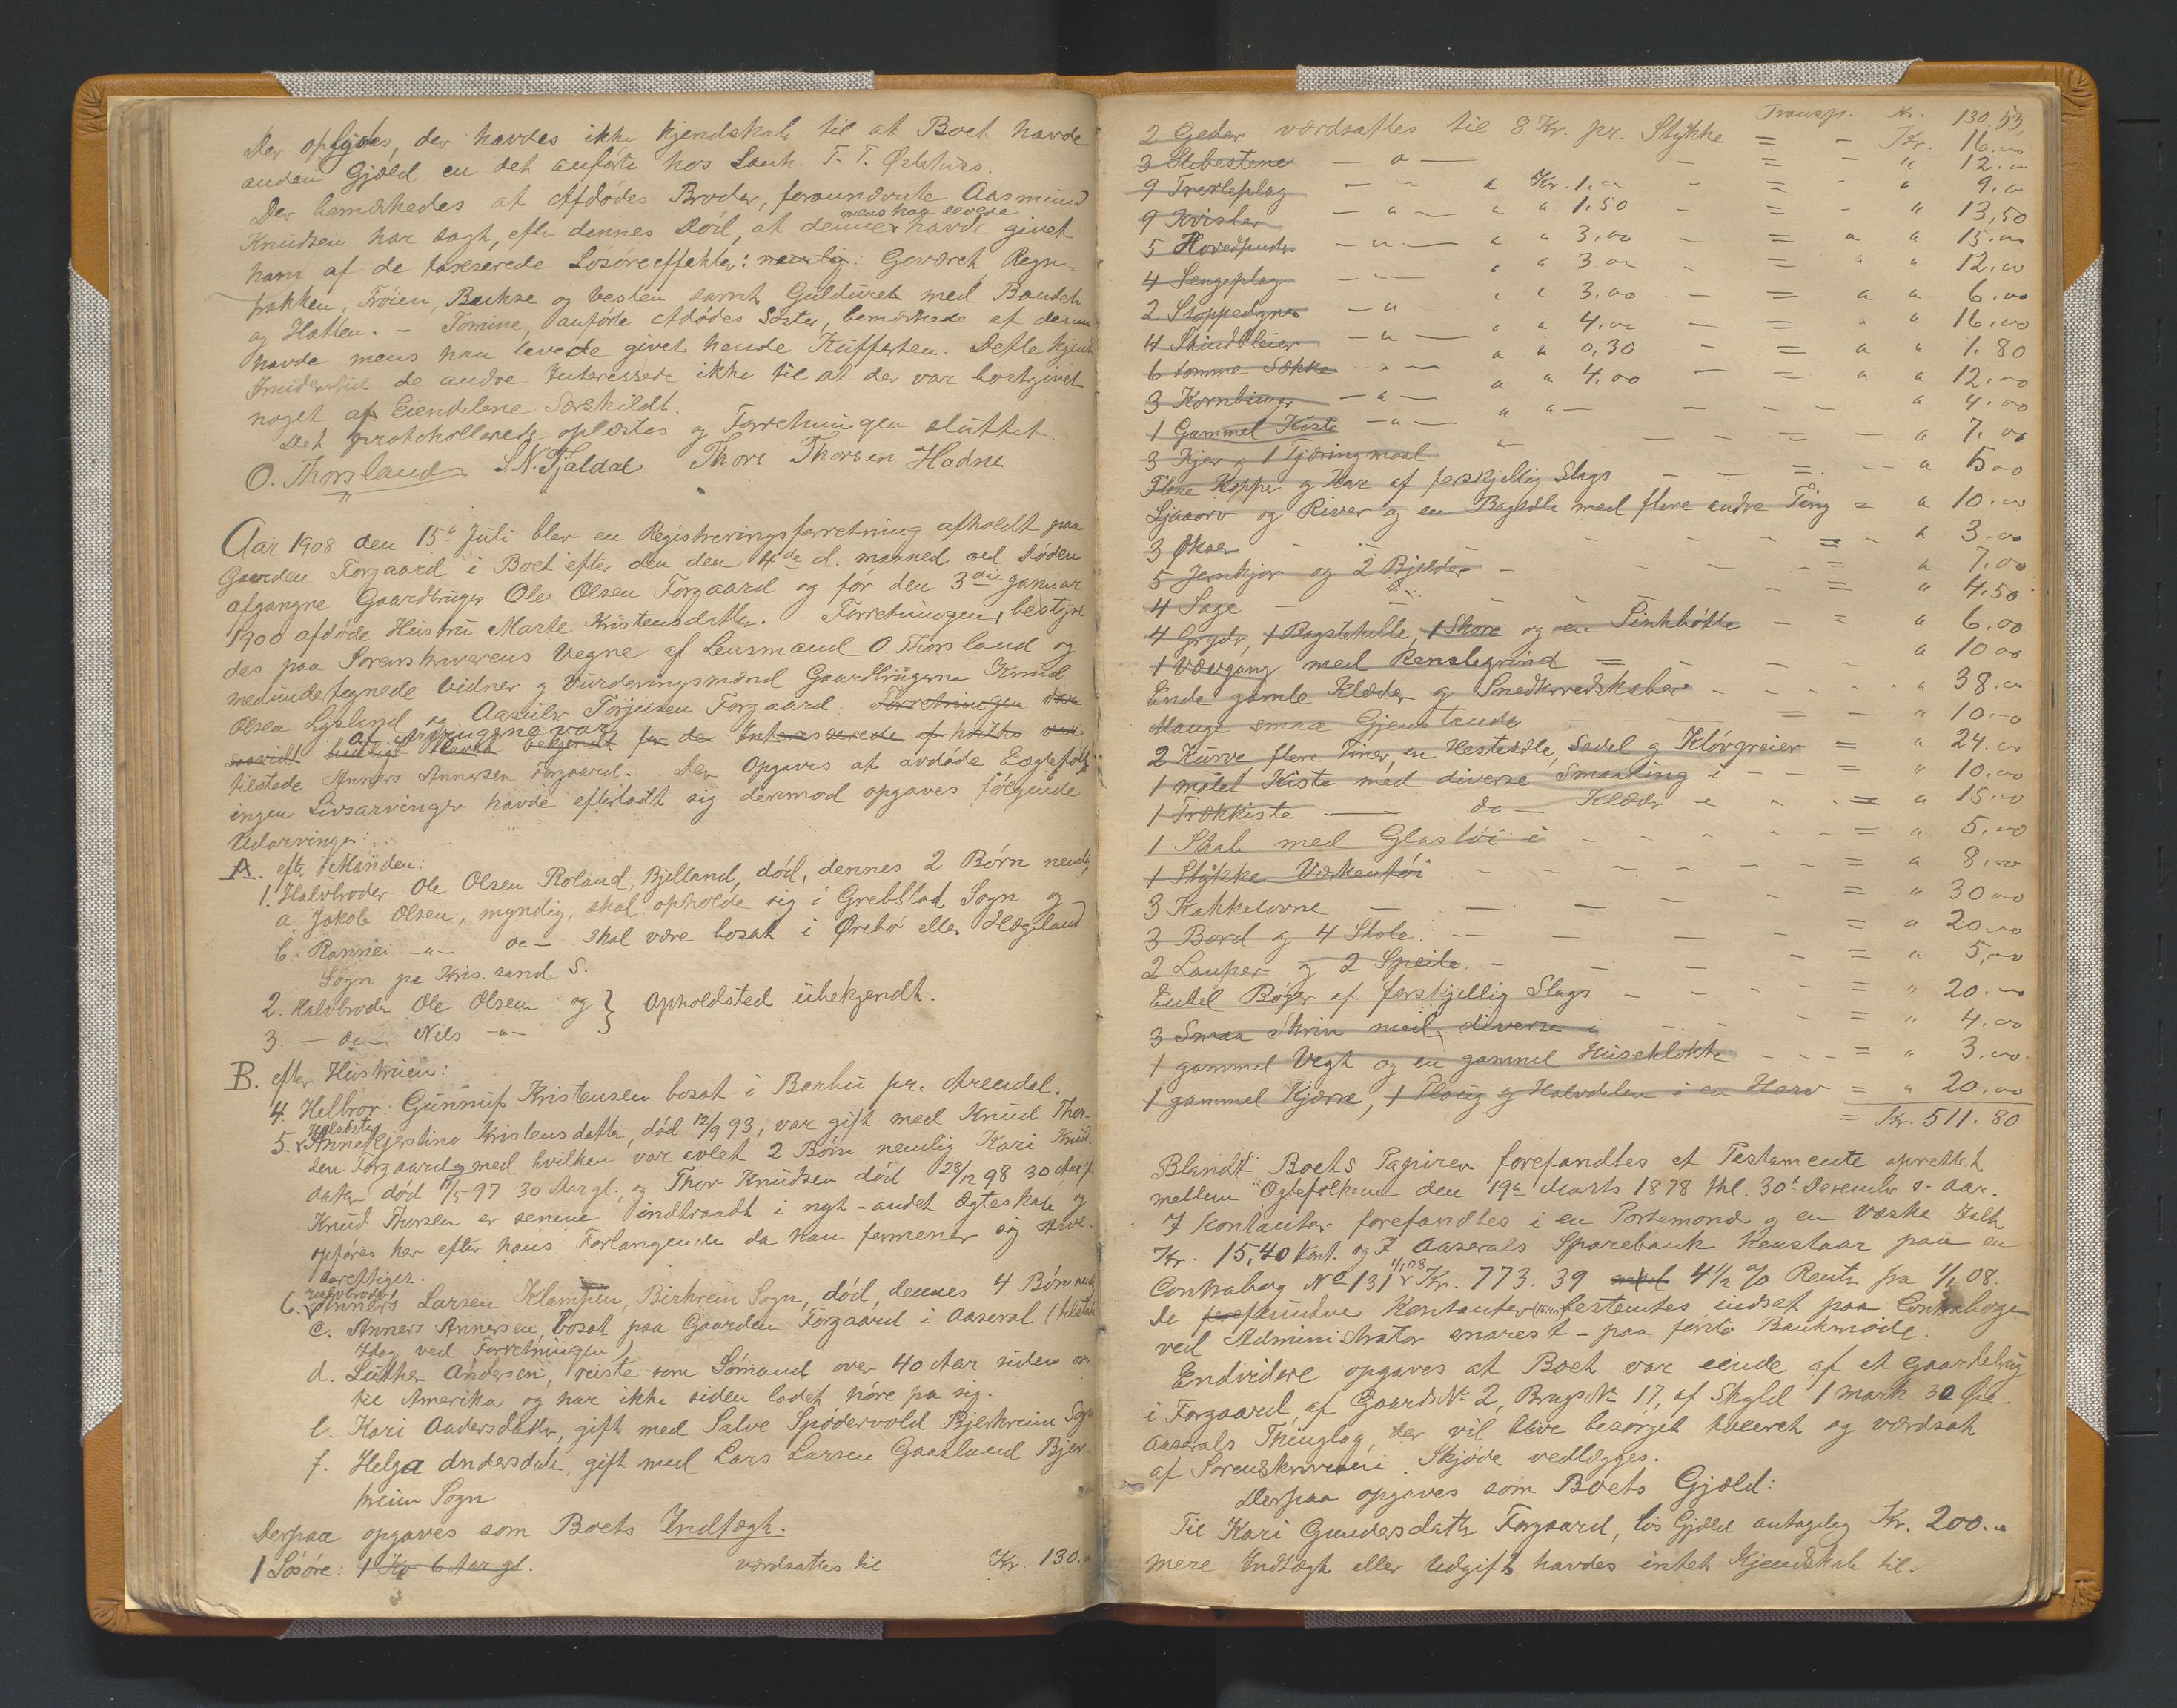 Der oplystes, der havdes ikke kjendskab til at Boet havde
anden Gjæld en det anførte hos Lanh. T. T.
Der bemærkedes at Afdødes Broder, forannævnte Aasmund
Knudsen har sagt, efter dennes Død, at denne mens han levede havde givet
ham af de taxerede Løsøreeffekter: nemlig: Geværet, Regn-
frakken, Trøien, Buxse og Vesten samt Gulduret med Baandet
og Hatten. – Tomine, anførte Afdødes Søster, bemærkede at denne
havde mens han levede givet hende Kufferten. Dette kjendte
de andre Interessede ikke til at der var bortgivet
noget af Eiendelene Særskildt.
Det protokollerede oplæstes og Forretningen sluttet.
O. Thorsland S. N. Fjaldal Thore Thorsen Hodne
Aar 1908 den 15de Juli blev en Registreringsforretning afholdt paa
Gaarden Forgaard i Boet efter den den 4de d. maaned ved Døden
afgangne Gaardbruger Ole Olsen Forgaard og før den 3die Januar
1900 afdøde Hustru Marte Kristensdatter. Forretningen, bestyre
des paa Sorenskriverens Vegne af Lensmand O. Thorsland og
medundertegnede Vidner og Vurderingsmænd Gaardbrugerne Knud
Olsen Lysland og Aasulv Torjusen Forgaard. Forretningen
saavidt Af Arvingerne var bekjendt for de Interesserede
tilstede Anners Annersen Forgaard. Der Opgaves at avdøde Eægtefolk
ingen Livsarvinger havde efterladt sig derimod opgaves følgende
Udarvinger:
A. efter Manden:
1. Halvbroder Ole Olsen Roland, Bjelland, død, dennes 2 Børn nemlig
a. Jakob Olsen, myndig, skal opholde sig i Grebstad Sogn og
b. Rannei –"– do – skal være bosat i Ørebø eller Hægeland
Sogn pr Kris.sand S.
2. Halvbroder Ole Olsen og } Opholdsted ubekjendt.
3. – do – Nils –"–
B. efter Hustruen:
4. Helbror: Gunnuf Kristensen bosat i Barbu pr. Arendal.
5. Helsøster Anne Kjerstine Kristensdatter, død 12/9 93, var gift med Knud Thor-
sen Forgaard og med hvilken var avlet 2 Børn nemlig Kari Knuds
datter død 17/5 97 30 Aar gl. og Thor Knudsen død 28/12 98 30 Aar gl.
Knud Thorsen er senere indtraadt i nyt – andet Ægteskab og
opføres her efter hans Forlangende da han formener sig arve-
berettiget.
6. Halvbroder Anners Larsen Klampen, Birkrem Sogn, død, dennes 4 Børn nemlig
c. Anners Annersen, bosat paa Gaarden Forgaard i Aaseral (tilstede
Idag ved Forretningen)
d. Luther Andersen, reiste som Sømand over 40 Aar siden over
til Amerika og har ikke siden ladet høre fra sig.
e. Kari Andersdatter, gift med Salve Spødervold Bjerkreim Sogn
f. Helga Andersdatr. gift med Lars Larsen Gaasland Bjer-
kreim Sogn
Derpaa opgaves som Boets Indtægt.
1 Løsøre: 1 Ko 6 Aar gl. værdsattes til Kr. 130,
Transp. Kr. 130,53
2 Geder værdsattes til 8 Kr. pr. Stykke = - Kr. 16.00
3 Slibestene — " — - = - " 12.00
9 Treskeplag — " — a Kr. 1.00 - = - " 9.00
9 Kvisler — " — a " 1.50 - = - " 13,50
5 Hovedpuder — " — a " 3,00 - = " " 15.00
4 Sengeplag — " — " " 3.00 - = " " 12.00
2 Stoppedyner — " " " 3.00 - = " " 6.00
4 Skindfleier — " — " " 4.00 - = " " 16.00
6 tomme Sække — " — " " 0,30 - = " " 1.80
3 Kornbinger — " — " " 4.00 - = " " 12.00
1 Gammel Kiste — " — " " — - - - " 4.00
3 Kjer og 1 Tjæringmaal " - - = - " 7.00
Flere Kopper og Kar af forskjellig Slags - - = - " 5.00
Ljaaorv og River og en Bagsdle med flere andre Ting = " 10.00
3 Økser - - - - = - " 3.00
5 Jernkjør og 2 Bjelder - - - = " 7.00
4 Sage - - - - = " 4.50
4 Gryder, 1 Bagstehelle, 1 Skore og en Sinkbøtte - = " 6.00
1 Vævgang med Renslegrind = - - - " 10.00
Ende gamle Klæder og Smedkredskaber - - - - " 38.00
Mange smaa Gjenstande - - = - " 10.00
2 Kurve, flere Tiner, en Hestesdle, Sadel og Kløvgreier = " 24.00
1 malet Kiste med diverse Smaating i - - = " 10.00
1 Trækkiste — do — Klæder i - - = " 15.00
1 Skab med Glastøi i - - - - = " 5.00
1 Stykke Værkentøi - - - - = " 8.00
3 Kakkelovne - - - - = " 30.00
3 Bord og 4 Stole. - - - = " 20.00
2 Lamper og 2 Speile. - - - = " 5,00
Endel Bøger af forskjellig Slags - - - = " 20.00
3 Smaa Skrin med diverse i - - - = " 4.00
1 gammel Vegt og en gammel Huseklokke - - - = " 3.00
1 gammel Kjærre, 1 Ploug og Halvdelen i en Harv = " 20.00
= Kr. 511.80
Blandt Boets Papirer forefandtes et Testamente oprettet
mellem Ægtefolkene den 19de Marts 1878 thl. 30te December s. Aar.
I Kontanter forefandtes i en Portemonæ og en Væske Ialt
Kr. 15,40 Kont. og I Aaserals Sparebank henstaar paa en
Contrabog No 131 1/1 08 Kr. 773.39 med 4½ % Rente fra 1/1 08.
De forefundne Kontanter bestemtes indsat paa Contrabogen
ved Administrator snarest – paa første Bankmøde.
Endvidere opgaves at Boet var eiende af et Gaardebrug
i Forgaard, af Gaards No 2, Brugs No 17, af Skyld 1 mark 30 Øre.
Aaserals Thinglag, der vil blive besørget taxeret og værdsat
af Sorenskriveren. Skjøde vedlægges.
Derpaa opgaves som Boets Gjæld:
Til Kari Gundersdatter Forgaard, løs Gjæld antagelig Kr. 200.00
Mere Indtægt eller Udgift havdes intet Kjendskab til.